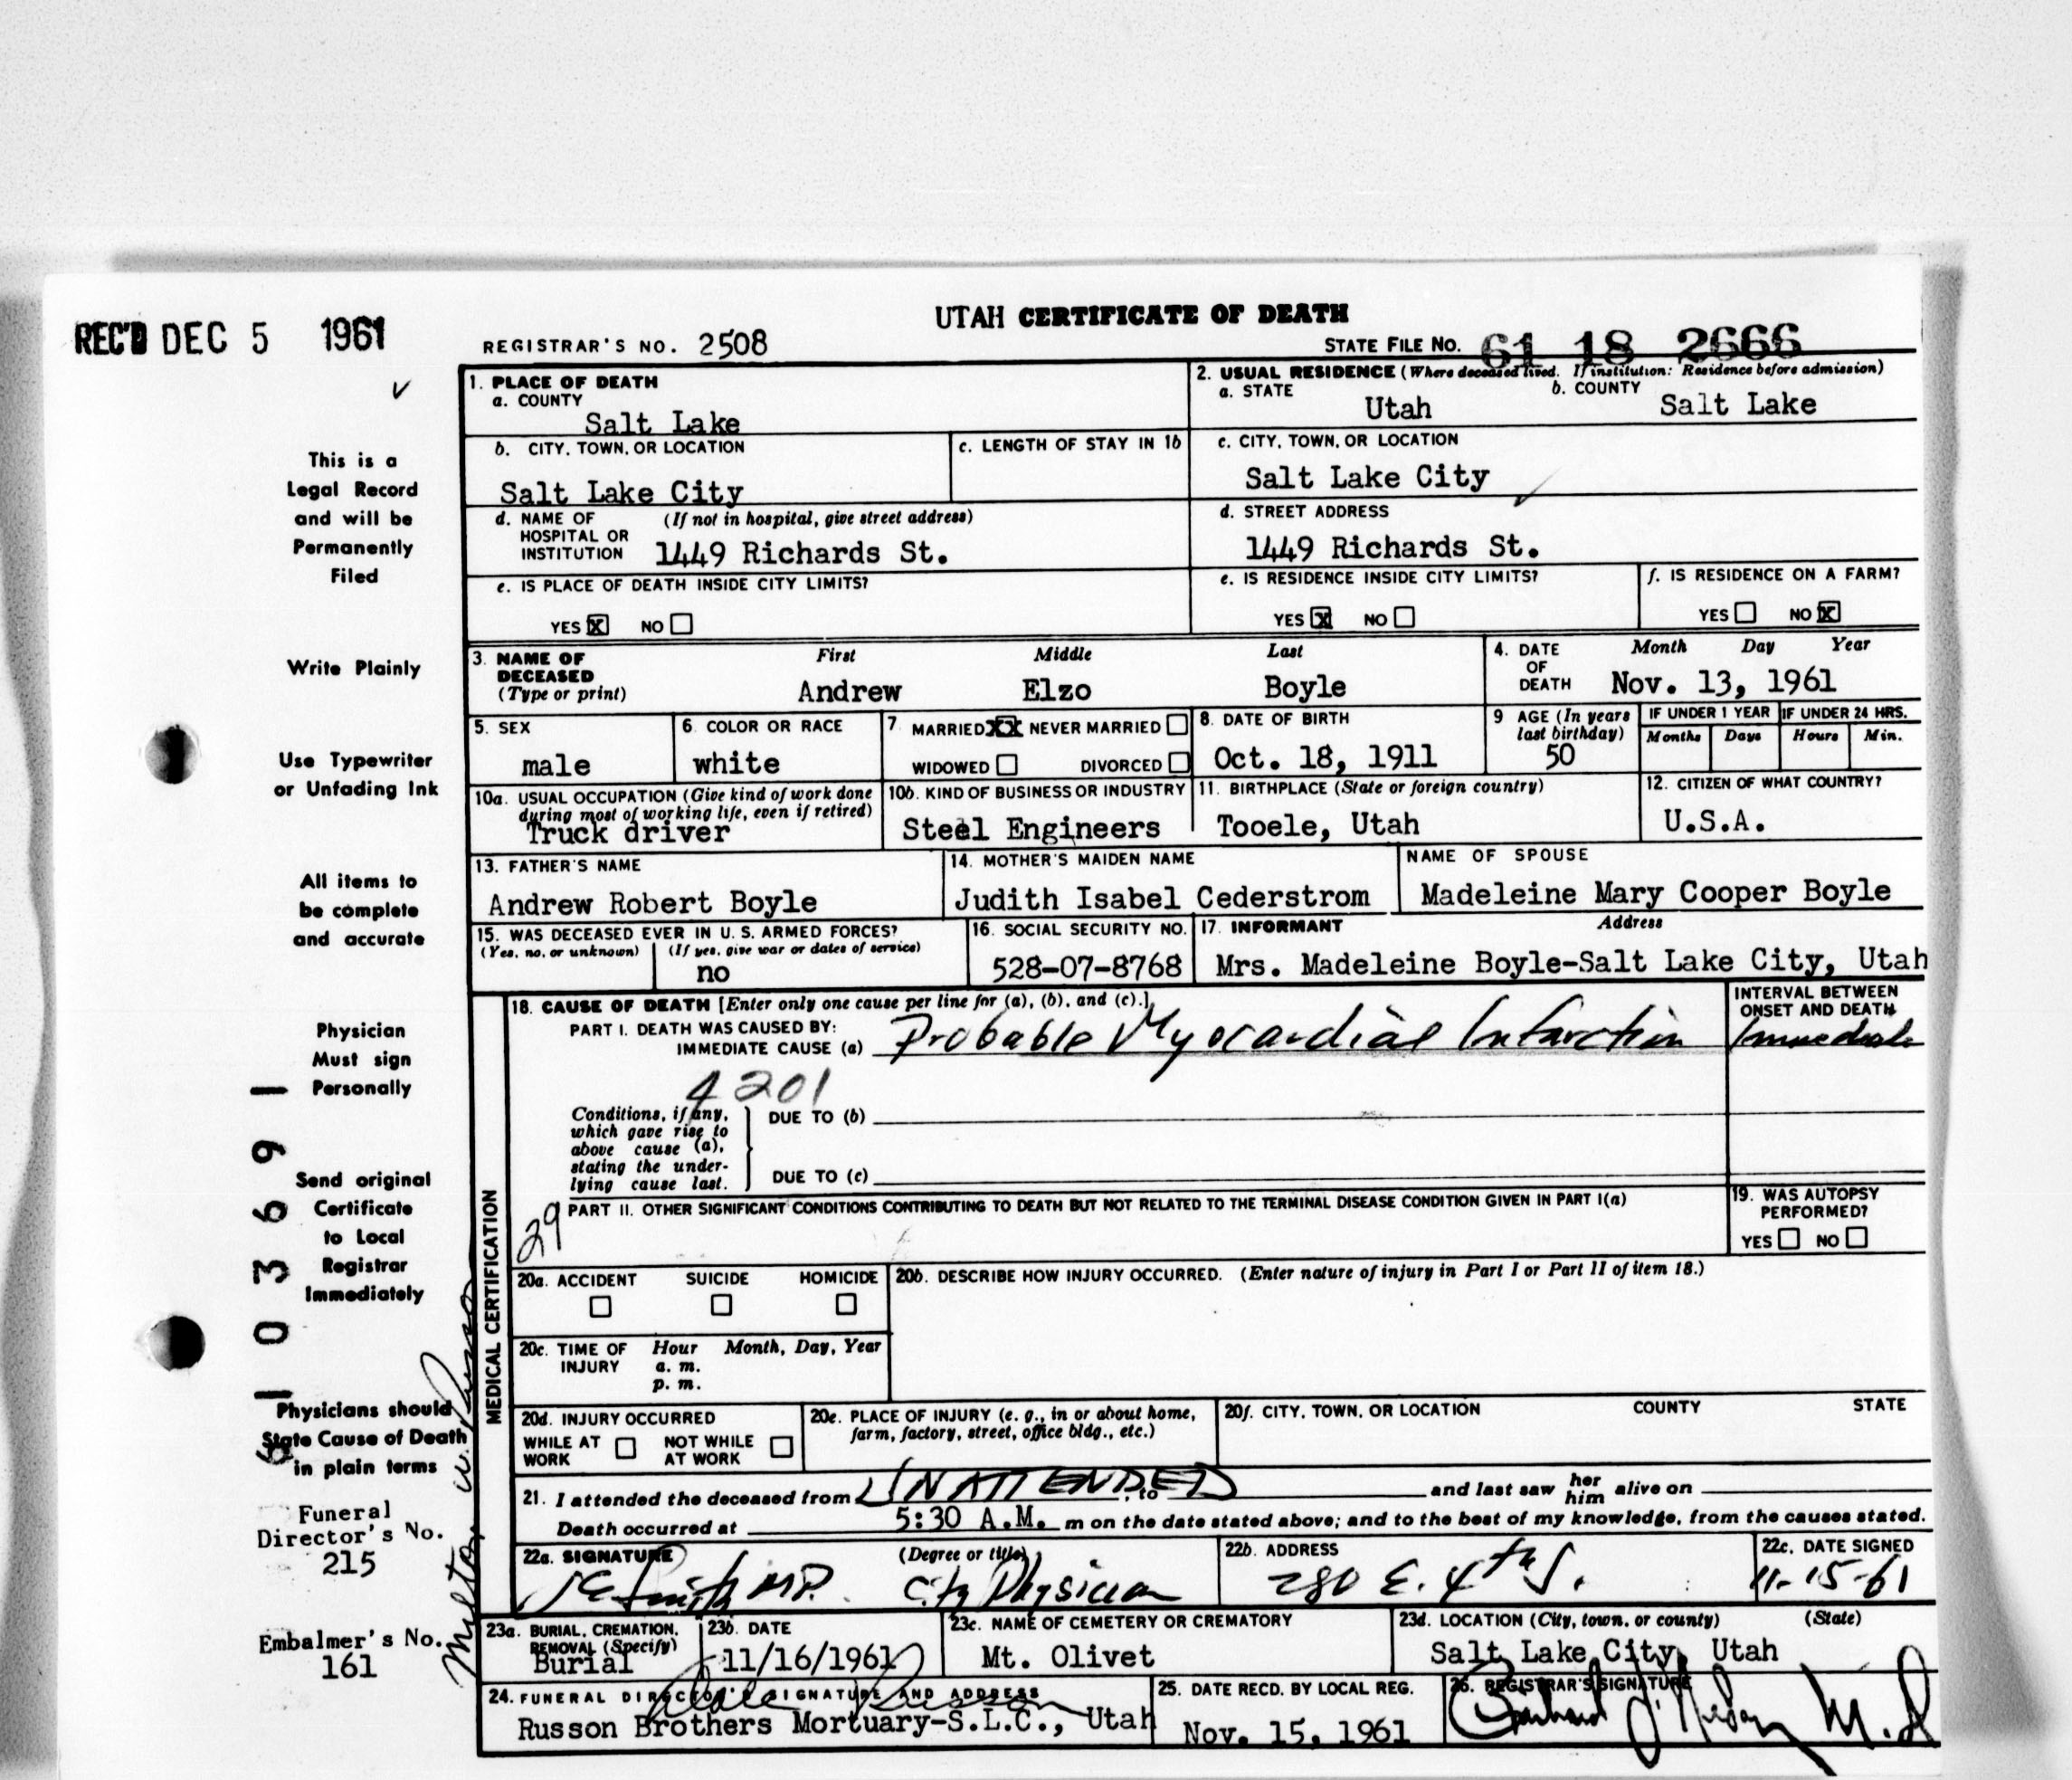 UTAH CERTIFICATE OF DEATH
REC'D DEC 5 1961
REGISTRAR'S NO. 2508
STATE FILE NO. 61 18 2666
1. PLACE OF DEATH
a. COUNTY
Salt Lake
2. USUAL RESIDENCE (Where deceased lived. If institution: Residence before admission)
a. STATE Utah b. COUNTY Salt Lake
b. CITY, TOWN, OR LOCATION
Salt Lake City
c. LENGTH OF STAY IN 1b
c. CITY, TOWN, OR LOCATION
Salt Lake City
d. NAME OF HOSPITAL OR INSTITUTION (If not in hospital, give street address)
1449 Richards St.
d. STREET ADDRESS
1449 Richards St.
e. IS PLACE OF DEATH INSIDE CITY LIMITS?
YES X NO
e. IS RESIDENCE INSIDE CITY LIMITS?
YES X NO
f. IS RESIDENCE ON A FARM?
YES NO X
3. NAME OF DECEASED (Type or print)
First Middle Last
Andrew Elzo Boyle
4. DATE OF DEATH Month Day Year
Nov. 13, 1961
5. SEX
male
6. COLOR OR RACE
white
7. MARRIED XX NEVER MARRIED
WIDOWED DIVORCED
8. DATE OF BIRTH
Oct. 18, 1911
9 AGE (In years last birthday)
50
IF UNDER 1 YEAR
Months Days
IF UNDER 24 HRS.
Hours Min.
10a. USUAL OCCUPATION (Give kind of work done during most of working life, even if retired)
Truck driver
10b. KIND OF BUSINESS OR INDUSTRY
Steel Engineers
11. BIRTHPLACE (State or foreign country)
Tooele, Utah
12. CITIZEN OF WHAT COUNTRY?
U.S.A.
13. FATHER'S NAME
Andrew Robert Boyle
14. MOTHER'S MAIDEN NAME
Judith Isabel Cederstrom
NAME OF SPOUSE
Madeleine Mary Cooper Boyle
15. WAS DECEASED EVER IN U. S. ARMED FORCES?
(Yes, no, or unknown) (If yes, give war or dates of service)
no
16. SOCIAL SECURITY NO.
528-07-8768
17. INFORMANT Address
Mrs. Madeleine Boyle-Salt Lake City, Utah
MEDICAL CERTIFICATION
18. CAUSE OF DEATH [Enter only one cause per line for (a), (b), and (c).]
PART I. DEATH WAS CAUSED BY:
IMMEDIATE CAUSE (a) Probable Myocardial Infarction
INTERVAL BETWEEN ONSET AND DEATH
Immediate
4201
Conditions, if any, which gave rise to above cause (a), stating the underlying cause last.
DUE TO (b)
DUE TO (c)
29
PART II. OTHER SIGNIFICANT CONDITIONS CONTRIBUTING TO DEATH BUT NOT RELATED TO THE TERMINAL DISEASE CONDITION GIVEN IN PART I(a)
19. WAS AUTOPSY PERFORMED?
YES NO
20a. ACCIDENT SUICIDE HOMICIDE
20b. DESCRIBE HOW INJURY OCCURRED. (Enter nature of injury in Part I or Part II of item 18.)
20c. TIME OF INJURY Hour Month, Day, Year
a. m.
p. m.
20d. INJURY OCCURRED
WHILE AT WORK NOT WHILE AT WORK
20e. PLACE OF INJURY (e. g., in or about home, farm, factory, street, office bldg., etc.)
20f. CITY, TOWN, OR LOCATION COUNTY STATE
21. I attended the deceased from UNATTENDED, to and last saw her him alive on
Death occurred at 5:30 A.M. m on the date stated above; and to the best of my knowledge, from the causes stated.
22a. SIGNATURE (Degree or title)
Smith MD. City Physician
22b. ADDRESS
280 E. 4th S.
22c. DATE SIGNED
11-15-61
23a. BURIAL, CREMATION, REMOVAL (Specify)
Burial
23b. DATE
11/16/1961
23c. NAME OF CEMETERY OR CREMATORY
Mt. Olivet
23d. LOCATION (City, town, or county) (State)
Salt Lake City, Utah
24. FUNERAL DIRECTOR'S SIGNATURE AND ADDRESS
Dale Russon
Russon Brothers Mortuary-S.L.C., Utah
25. DATE RECD. BY LOCAL REG.
Nov. 15, 1961
26. REGISTRAR'S SIGNATURE
M.D
This is a
Legal Record
and will be
Permanently
Filed
Write Plainly
Use Typewriter
or Unfading Ink
All items to
be complete
and accurate
Physician
Must sign
Personally
Send original
Certificate
to Local
Registrar
Immediately
Physicians should
State Cause of Death
in plain terms
Funeral
Director's No.
215
Embalmer's No.
161
Milton W. Russon
6 1 0 3 6 9 1